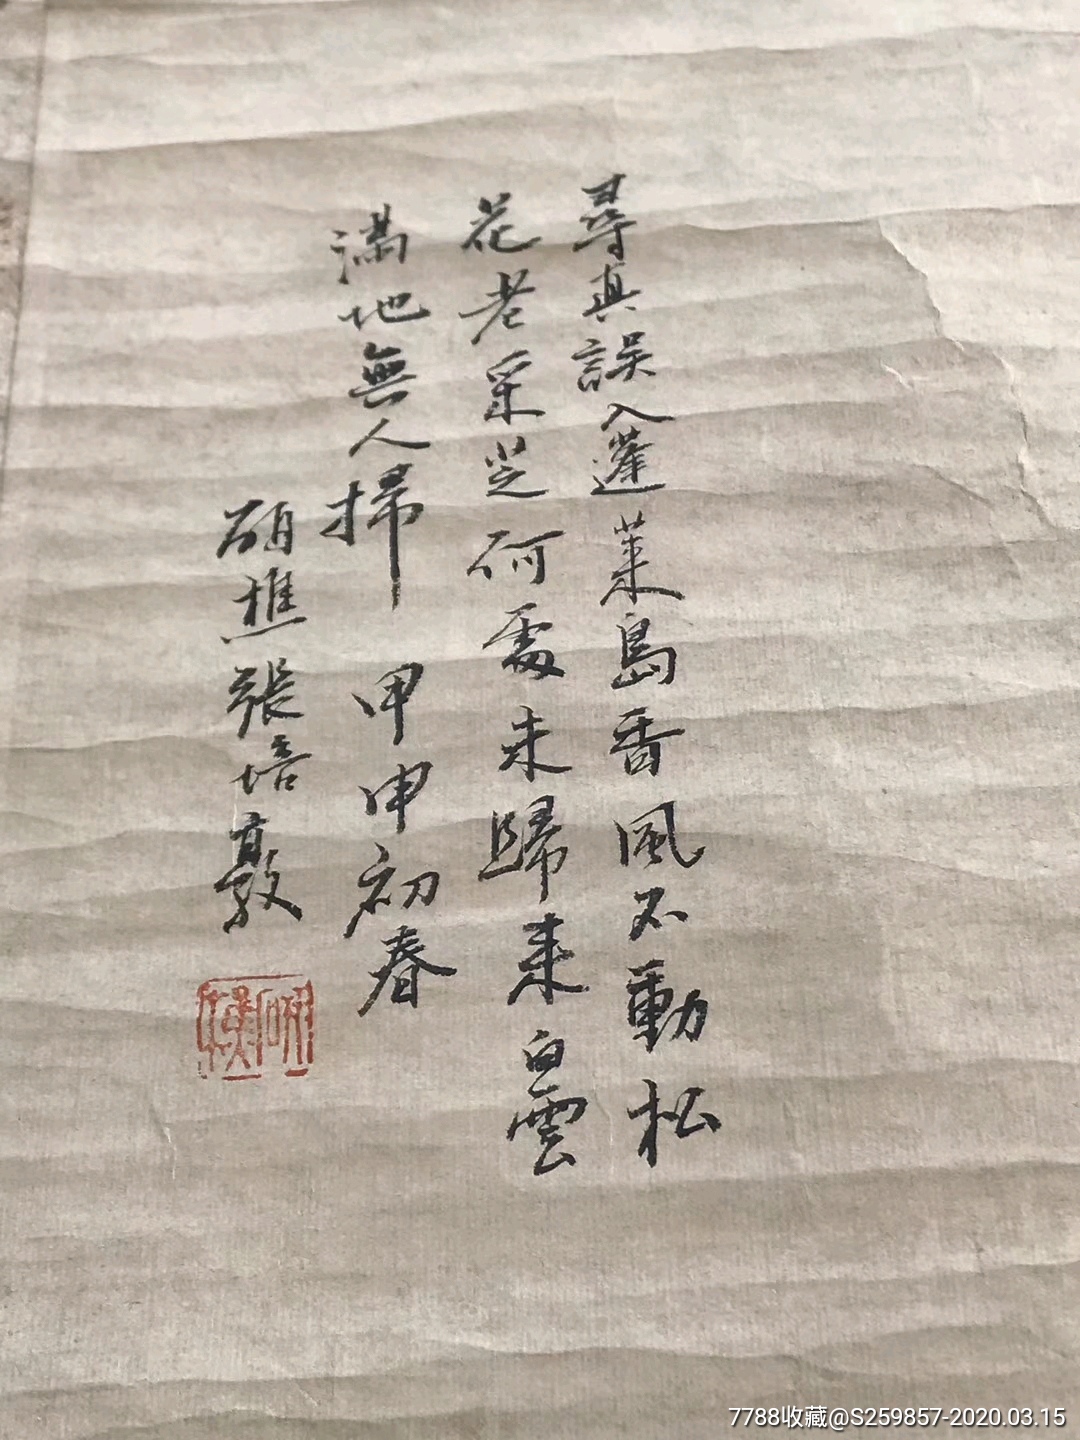 尋真誤入蓬萊島香風不動松
花老采芝何處未歸來白雲
滿地無人掃 甲申初春
研樵張培敦
研樵
7788收藏@S259857-2020.03.15